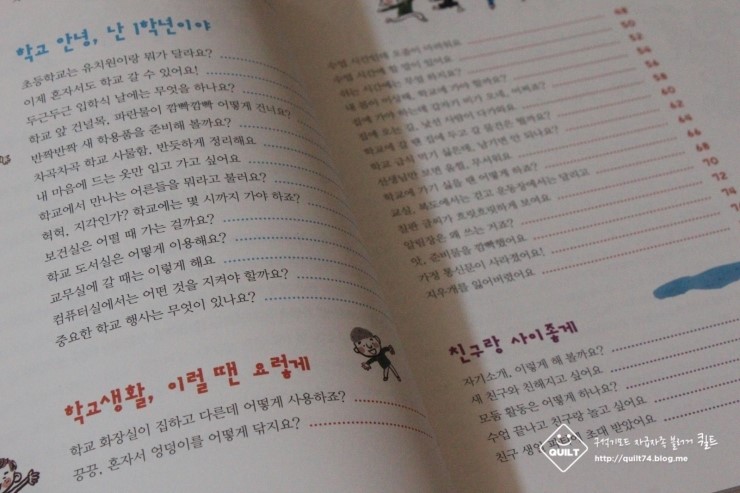 학교 안녕, 난 1학년이야
초등학교는 유치원이랑 뭐가 달라요?
이제 혼자서도 학교 갈 수 있어요!
두근두근 입학식 날에는 무엇을 하나요?
학교 앞 건널목, 파란불이 깜빡깜빡 어떻게 건너요?
반짝반짝 새 학용품을 준비해 볼까요?
차곡차곡 학교 사물함, 반듯하게 정리해요
내 마음에 드는 옷만 입고 가고 싶어요
학교에서 만나는 어른들을 뭐라고 불러요?
헉헉, 지각인가? 학교에는 몇 시까지 가야 하죠?
보건실은 어떨 때 가는 걸까요?
학교 도서실은 어떻게 이용해요?
교무실에 갈 때는 이렇게 해요
컴퓨터실에서는 어떤 것을 지켜야 할까요?
중요한 학교 행사는 무엇이 있나요?
학교생활, 이럴 땐 요렇게
학교 화장실이 집하고 다른데 어떻게 사용하죠?
끙끙, 혼자서 엉덩이를 어떻게 닦지요?
48
수업 시간인데 오줌이 마려워요
50
수업 시간에 할 말이 있어요
52
쉬는 시간에는 무엇 하지요?
54
내 몸이 이상해, 학교에 가야 할까요?
56
집에 가야 하는데 갑자기 비가 오네, 어쩌죠?
58
집에 오는 길, 낯선 사람이 다가와요
60
학교에 갈 땐 집에 두고 갈 물건은 뭘까요?
62
학교 급식 먹기 싫은데, 남기면 안 되나요?
64
선생님만 보면 움찔, 무서워요
66
학교에 가기 싫을 땐 어떻게 하죠?
68
교실, 복도에서는 걷고 운동장에서는 달리고
70
칠판 글씨가 흐릿흐릿하게 보여요
72
알림장은 왜 쓰는 거죠?
74
앗, 준비물을 깜빡했어요
가정 통신문이 사라졌어요!
지우개를 잃어버렸어요
친구랑 사이좋게
자기소개, 이렇게 해 볼까요?
새 친구와 친해지고 싶어요
모둠 활동은 어떻게 하나요?
수업 끝나고 친구랑 놀고 싶어요
친구 생일 초대 받았어요
QUILT
구석기모드 자급자족 블로거 퀼트
http://quilt74.blog.me